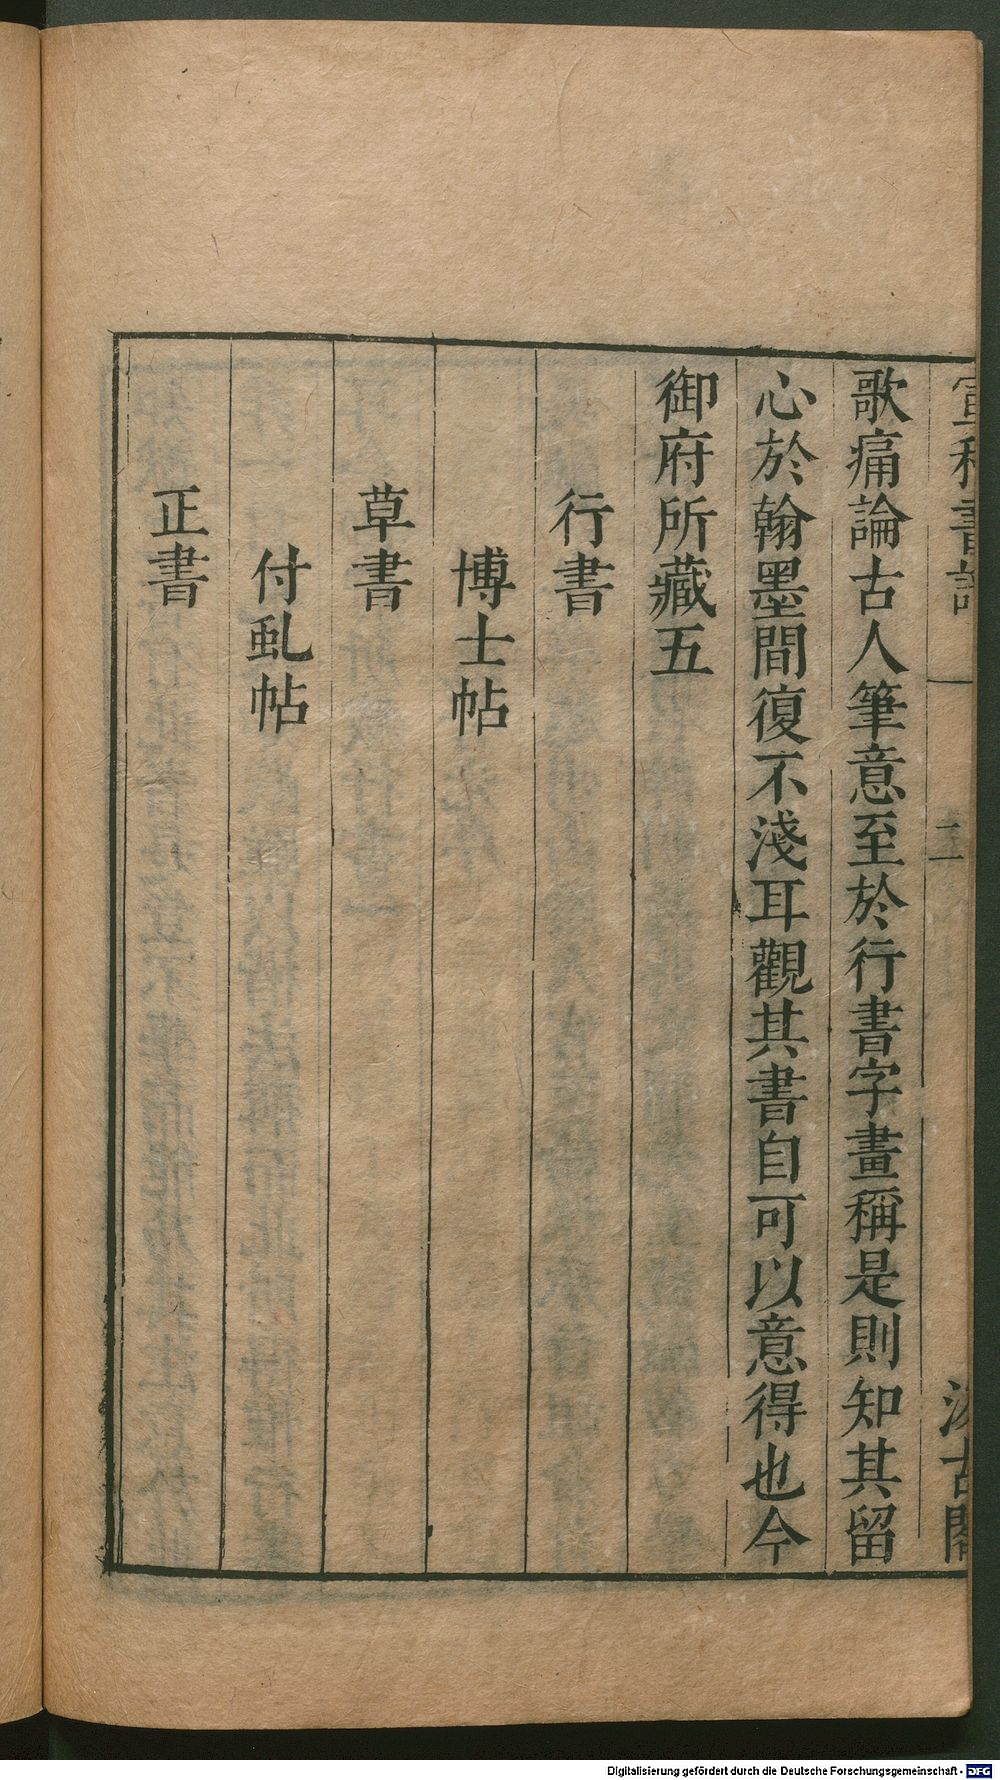 宣和書譜 一 二 汲古閣
歌痛論古人筆意至於行書字畫稱是則知其留
心於翰墨間復不淺耳觀其書自可以意得也今
御府所藏五
行書
博士帖
草書
付虬帖
正書
Digitalisierung gefördert durch die Deutsche Forschungsgemeinschaft - DFG